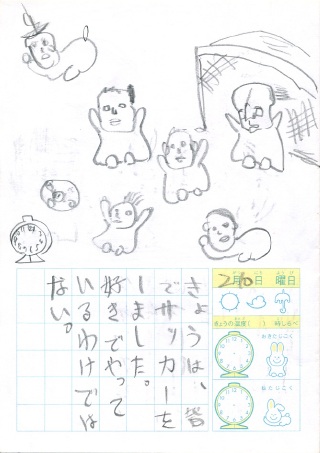 2月 日 曜日
きょうの温度( ) 時しらべ
おきたじこく
ねたじこく
きょうは、皆
でサッカーを
しました。
好きでやって
いるわけでは
ない。